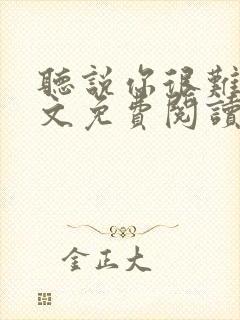 聽說你很難
文免費閱讀
金正大